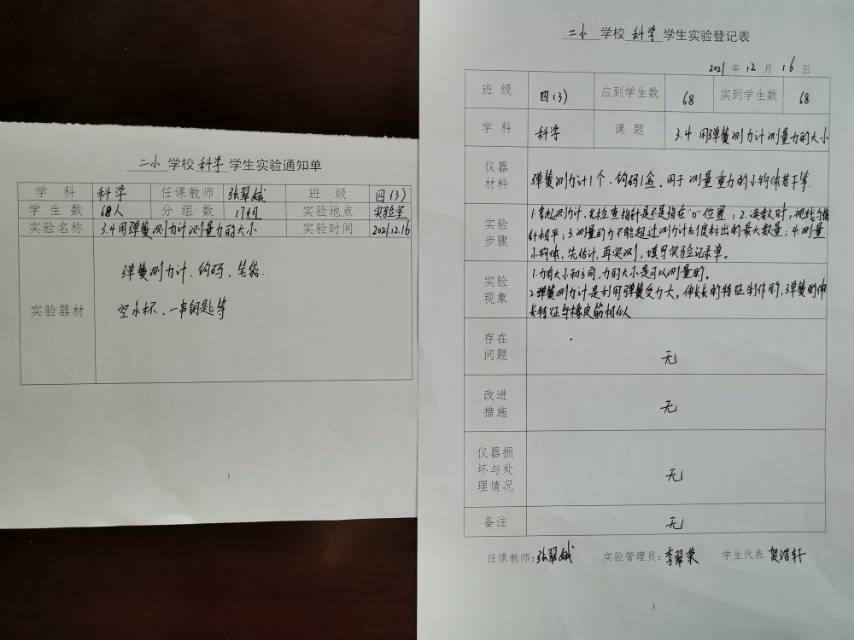 二小 学校 科学 学生实验通知单
学 科 科学 任课教师 张翠娥 班 级 四(3)
学 生 数 68人 分 组 数 17组 实验地点 实验室
实验名称 3.4用弹簧测力计测量力的大小 实验时间 2021.12.16
弹簧测力计、钩码、
实验器材 空水杯、一串钥匙等
1
二小 学校 科学 学生实验登记表
2021 年 12 月 16 日
班 级 四(3) 应到学生数 68 实到学生数 68
学 科 科学 课 题 3.4 用弹簧测力计测量力的大小
仪器
材料 弹簧测力计1个、钩码1盒、用于测量重力的小物体若干等
实验
步骤
1.拿起测力计,先检查指针是不是指在"0"位置;2.读数时,视线与指
针相平;3.测量的力不能超过测力计刻度标出的最大数量;4.测量
小物体,先估计,再实测,填写实验记录单。
实验
现象
1.力有大小和方向,力的大小是可以测量的。
2.弹簧测力计是利用弹簧受力大,伸长长的特征制作的,弹簧的伸
长特征与橡皮筋相似
存在
问题 无
改进
措施 无
仪器损
坏与处
理情况 无
备注 无
任课教师:张翠娥 实验管理员:李翠荣 学生代表 贺浩轩
3